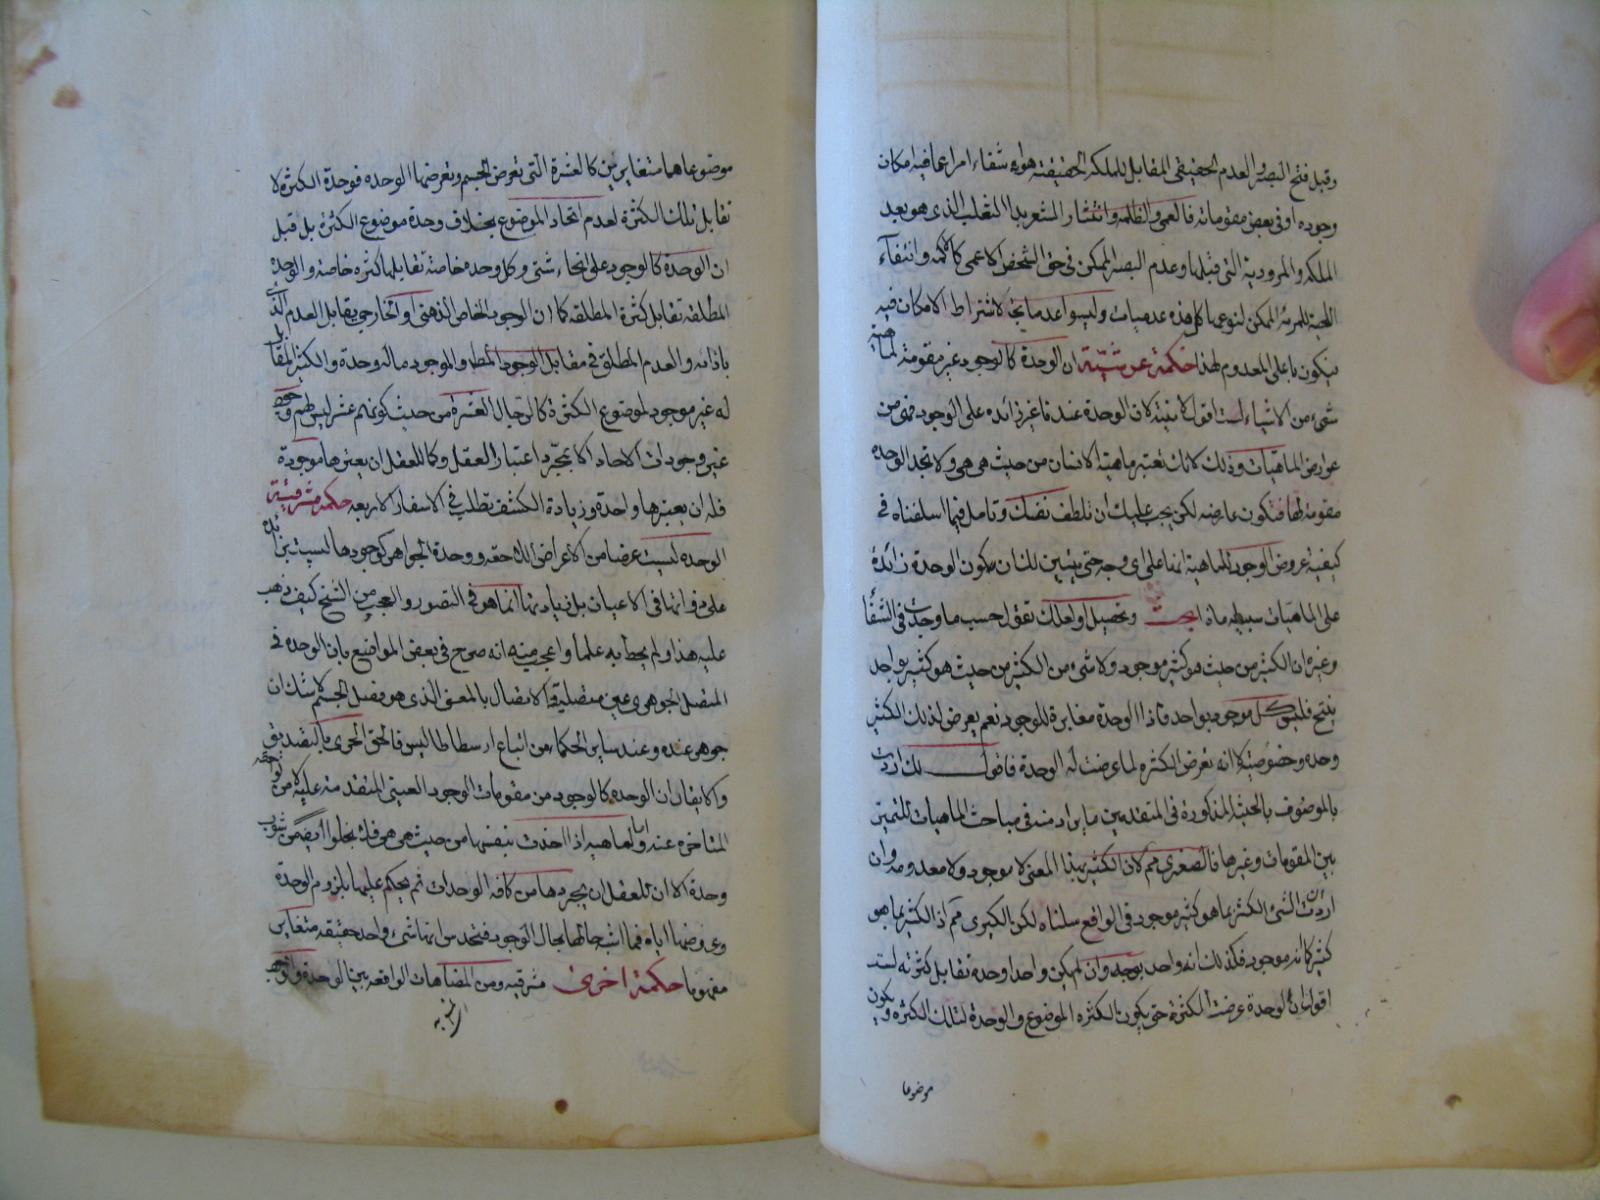 وقبل فتح البصر والعدم الحقيقي المقابل للملكة الحقيقية هو انتفاء امر عما فيه امكان
وجوده او في بعض مقوماته فالعمى والظلمة وانتشار الشعر بداء الثعلب الذي هو بعد
الملكة والمرودية التي قبلها وعدم البصر الممكن في حق الشخص كالاعمى كالاكمه وانتفاء
اللحية للمرأة الممكن لنوعها كل هذه عدميات وليسوا عدما بحتا لاشتراط الامكان فيه
فيكون باعلى المعدوم لهذا حكمة عرشية ان الوحدة كالوجود غير مقومة لماهية
شيء من الاشياء لست اقول لانيته لان الوحدة عندنا غير زائدة على الوجود فهي من
عوارض الماهيات وذلك لانك تعتبر ماهية الانسان من حيث هي هي ولا تجد الوحدة
مقومة لها فتكون عارضة لكن يجب عليك ان تلطف نفسك وتأمل فيما اسلفناه في
كيفية عروض الوجود للماهية انها على اي وجه حتى يتبين لك ان كون الوحدة زائدة
على الماهيات سبيله ماذا بحث وتحصيل ولعلك تقول حسب ما وجدت في الشفا
وغيره ان الكثير من حيث هو كثير موجود ولا شيء من الكثير من حيث هو كثير بواحد
ينتج فليس كل موجود بواحد فاذا الوحدة مغايرة للوجود نعم يعرض لذلك الكثير
وحدة وخصوصية لا انه يعرض الكثرة لما عرضت له الوحدة فاقول لك ان اردت
بالموصوف بالحيثية المذكورة في المقدمتين ما يراد منه في مباحث الماهيات للتميز
بين المقومات وغيرها فالصغرى مم لان الكثير بهذا المعنى لا موجود ولا معدوم وان
اردت ان الشيء الكثير بما هو كثير موجود في الواقع سلمناه لكن الكبرى مم اذ الكثير بما هو
كثير كما انه موجود فكذلك انه واحد بوجه وان لم يكن واحدا وحدة تقابل كثرته لست
اقول ان الوحدة عرضت الكثرة حتى يكون الكثرة الموضوع والوحدة لتلك الكثرة ويكون
موضوعا
موضوعاهما متغايرين كالعشرة التي تعرض الجسم وتعرضها الوحدة فوحدة الكثرة لا
تقابل تلك الكثرة لعدم اتحاد الموضوع بخلاف وحدة موضوع الكثرة بل قبل
ان الوحدة كالوجود على انحاء شتى وكل وحدة خاصة تقابلها كثرة خاصة والوحدة
المطلقة تقابل كثرة المطلقة كما ان الوجود الخاص الذهني او الخارجي يقابل العدم الذي
بازائه والعدم المطلق في مقابل الوجود المطلق والموجود ماله وحدة والكثير المقابل
له غير موجود لموضوع الكثرة كالرجال العشرة من حيث كونهم عشر ليس لهم وجود
غير وجودات الاحاد الا بمجرد اعتبار العقل وكما للعقل ان يعتبرها موجودة
فله ان يعتبرها واحدة وزيادة الكشف تطلب في الاسفار الاربعة حكمة مشرقية
الوحدة ليست عرضا من الاعراض اللاحقة ووحدة الجواهر كوجودها ليست بزائدة
على ذواتها في الاعيان بل زيادتها انما هو في التصور والعجب من الشيخ كيف ذهب
عليه هذا ولم يحط به علما واعجب منه انه صرح في بعض المواضع بان الوحدة في
المتصل الجوهري عين متصليته والاتصال بالمعنى الذي هو فصل الجسم لا شك ان
جوهر عنده وعند ساير الحكماء من اتباع ارسطاطاليس فالحق الحري بالتصديق
والايقان ان الوحدة كالوجود من مقومات الوجود العيني المتقدمة عليه لا من لواحقه
المتاخرة عنه واما الماهية اذا اخذت بنفسها من حيث هي هي فلا يخلوا ايضا من شوب
وحدة الا ان للعقل ان يجردها من كافة الوحدات ثم يحكم عليها بلزوم الوحدة
وعروضها اياه فما اشبه حالها بحال الوجود فتحدس انهما شيء واحد حقيقة متغايرين
مفهوما حكمة اخرى مشرقية ومن المضاهات الواقعة بين الوحدة والوجود